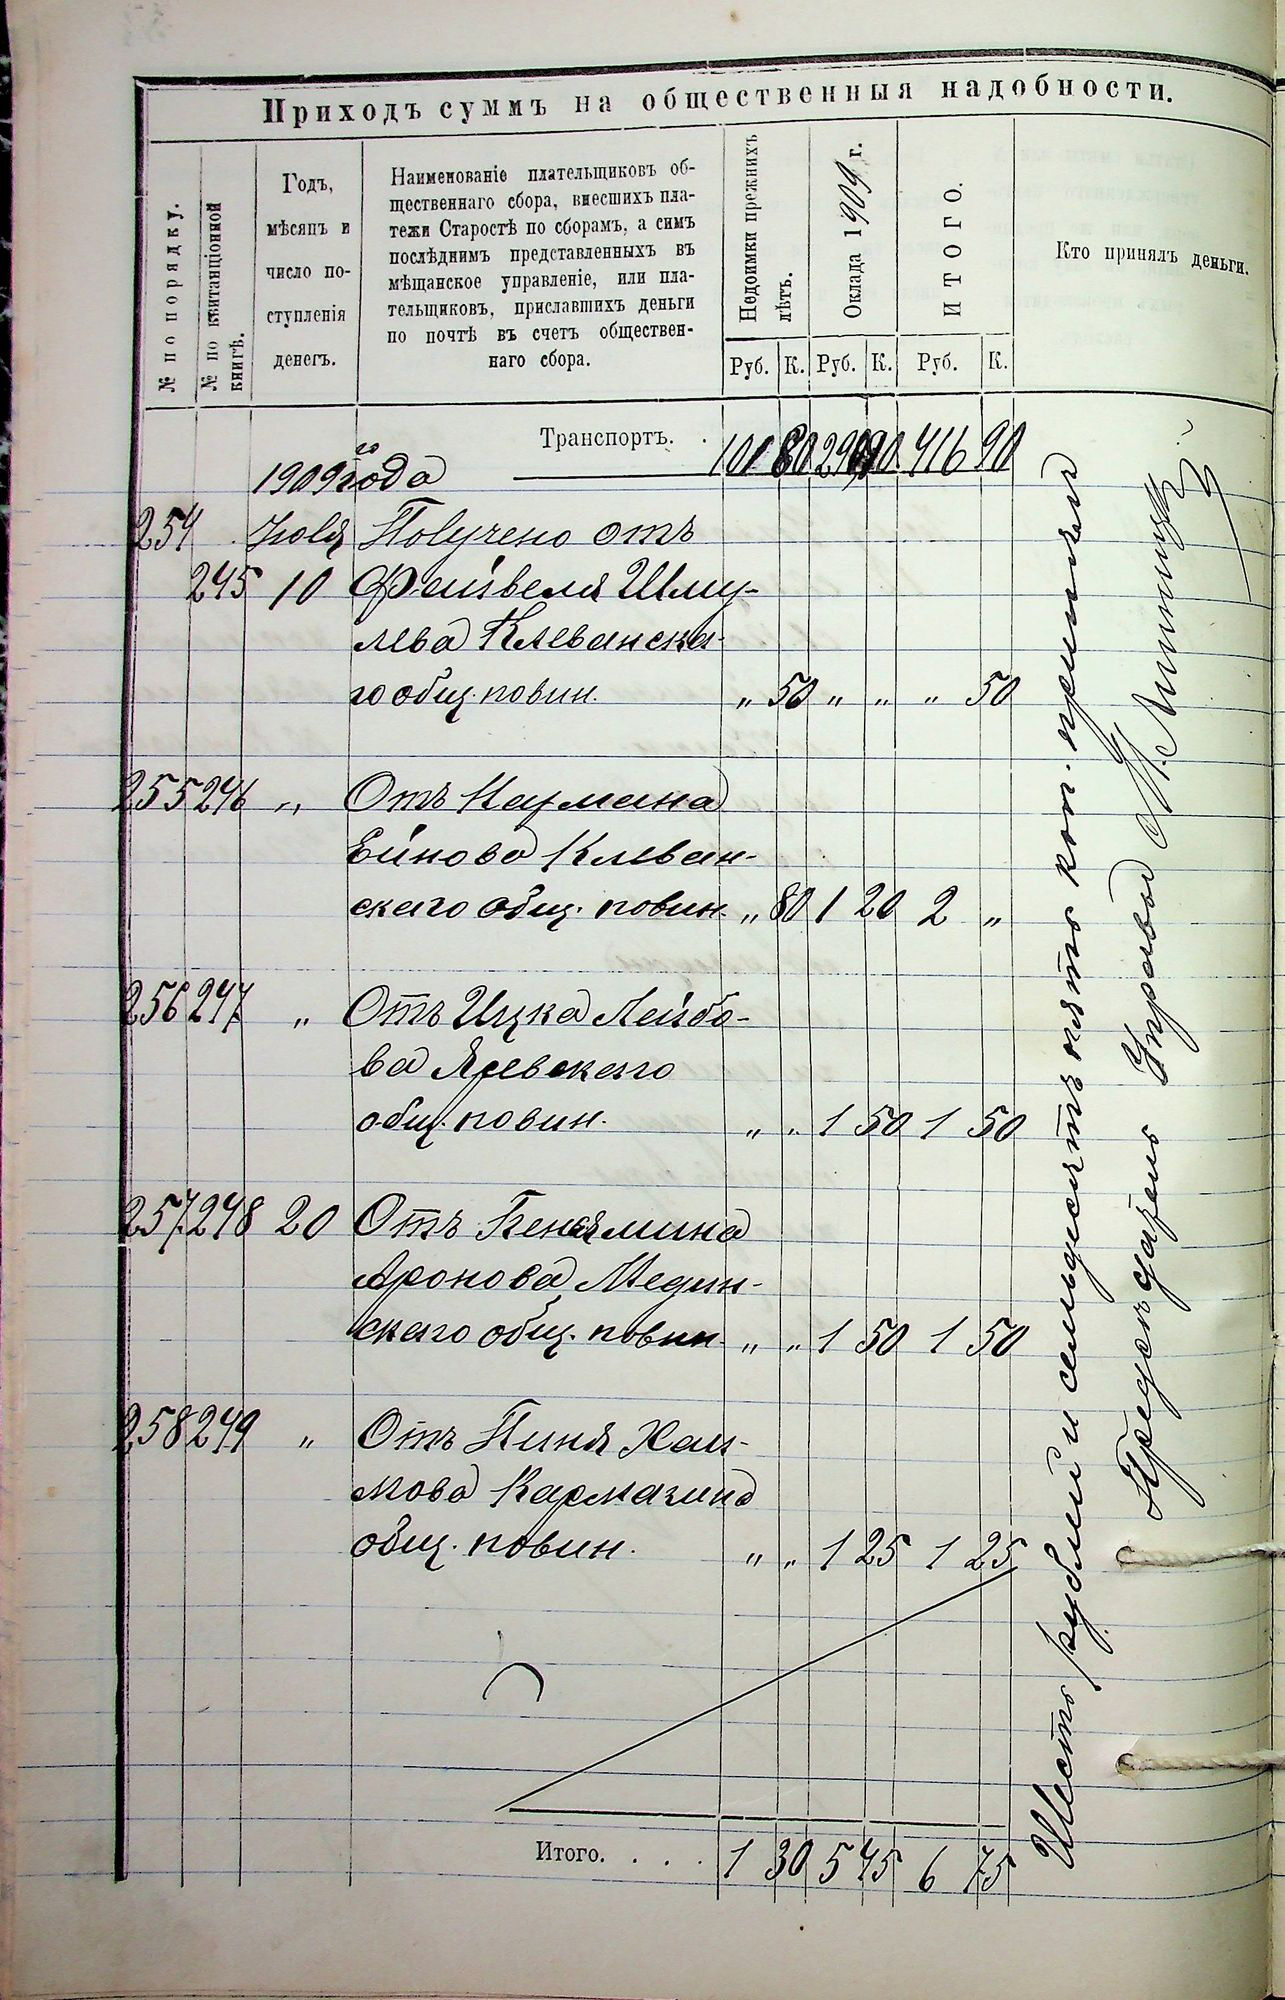 Приходъ суммъ на общественныя надобности.
№ по порядку.
№ по квитанціонной книгѣ.
Годъ,
мѣсяцъ и
число по-
ступленія
денегъ.
Наименованіе плательщиковъ об-
щественнаго сбора, внесшихъ пла-
тежи Старостѣ по сборамъ, а симъ
послѣднимъ представленныхъ въ
мѣщанское управленіе, или пла-
тельщиковъ, приславшихъ деньги
по почтѣ въ счетъ обществен-
наго сбора.
Недоимки прежнихъ
лѣтъ.
Оклада 1909 г.
ИТОГО.
Кто принялъ деньги.
Руб. К. Руб. К. Руб. К.
Транспортъ. . 80 90 416 90
1909 го года
254 Іюля Получено отъ
245 10 Фейвеля Шму-
лева Клеванска-
го общ. повин. " 50 " " " 50
255 246 " Отъ Наумана
Ейнова Клеван-
скаго общ. повин. " 80 1 20 2 "
256 247 " Отъ Ицка Лейбо-
ва
общ. повин. " " 1 50 1 50
257 248 20 Отъ Беньямина
Аронова Медин-
скаго общ. повин. " " 1 50 1 50
258 249 " Отъ Пиня Хаи-
мова Кармазина
общ. повин. " " 1 25 1 25
Итого. . . . 1 30 5 45 6 75
Шесть рублей и семьдесятъ пять коп. принялъ
Предсѣдатель Управы